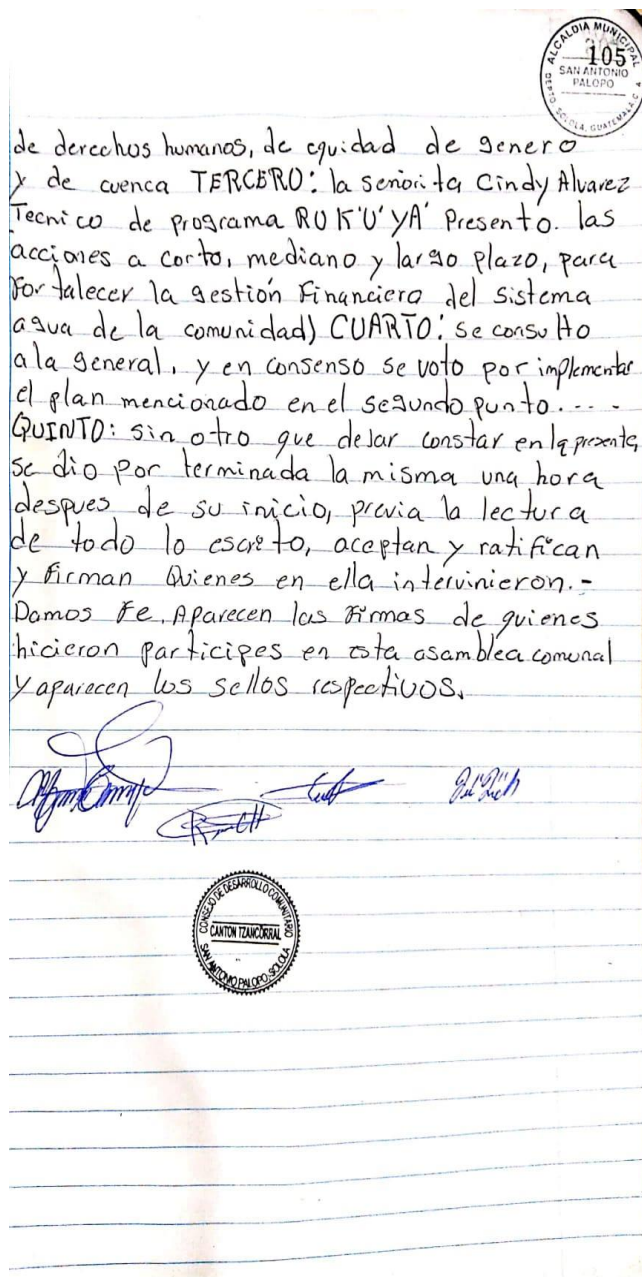 ALCALDIA MUNICIPAL
105
SAN ANTONIO
PALOPO
DEPTO. SOLOLA, GUATEMALA, C. A.
de derechos humanos, de equidad de genero
y de cuenca TERCERO: la señorita Cindy Alvarez
Tecnico de programa RU K'U' YA' Presento. las
acciones a corto, mediano y largo plazo, para
Fortalecer la gestión Financiero del Sistema
agua de la comunidad) CUARTO: se consulto
a la general, y en consenso se voto por implementar
el plan mencionado en el segundo punto. - - -
QUINTO: sin otro que dejar constar en la presente,
se dio por terminada la misma una hora
despues de su inicio, previa la lectura
de todo lo escrito, aceptan y ratifican
y firman Quienes en ella intervinieron. -
Damos Fe. Aparecen las Firmas de quienes
hicieron participes en esta asamblea comunal
y aparecen los sellos respectivos.
CONSEJO DE DESARROLLO COMUNITARIO
CANTON TZANCORRAL
SAN ANTONIO PALOPO, SOLOLA